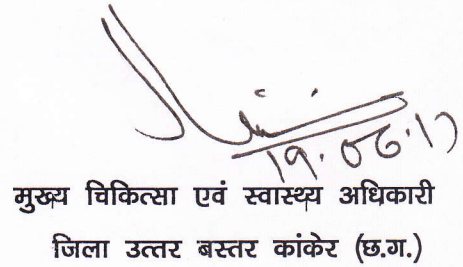 19.06.17
मुख्य चिकित्सा एवं स्वास्थ्य अधिकारी
जिला उत्तर बस्तर कांकेर (छ.ग.)